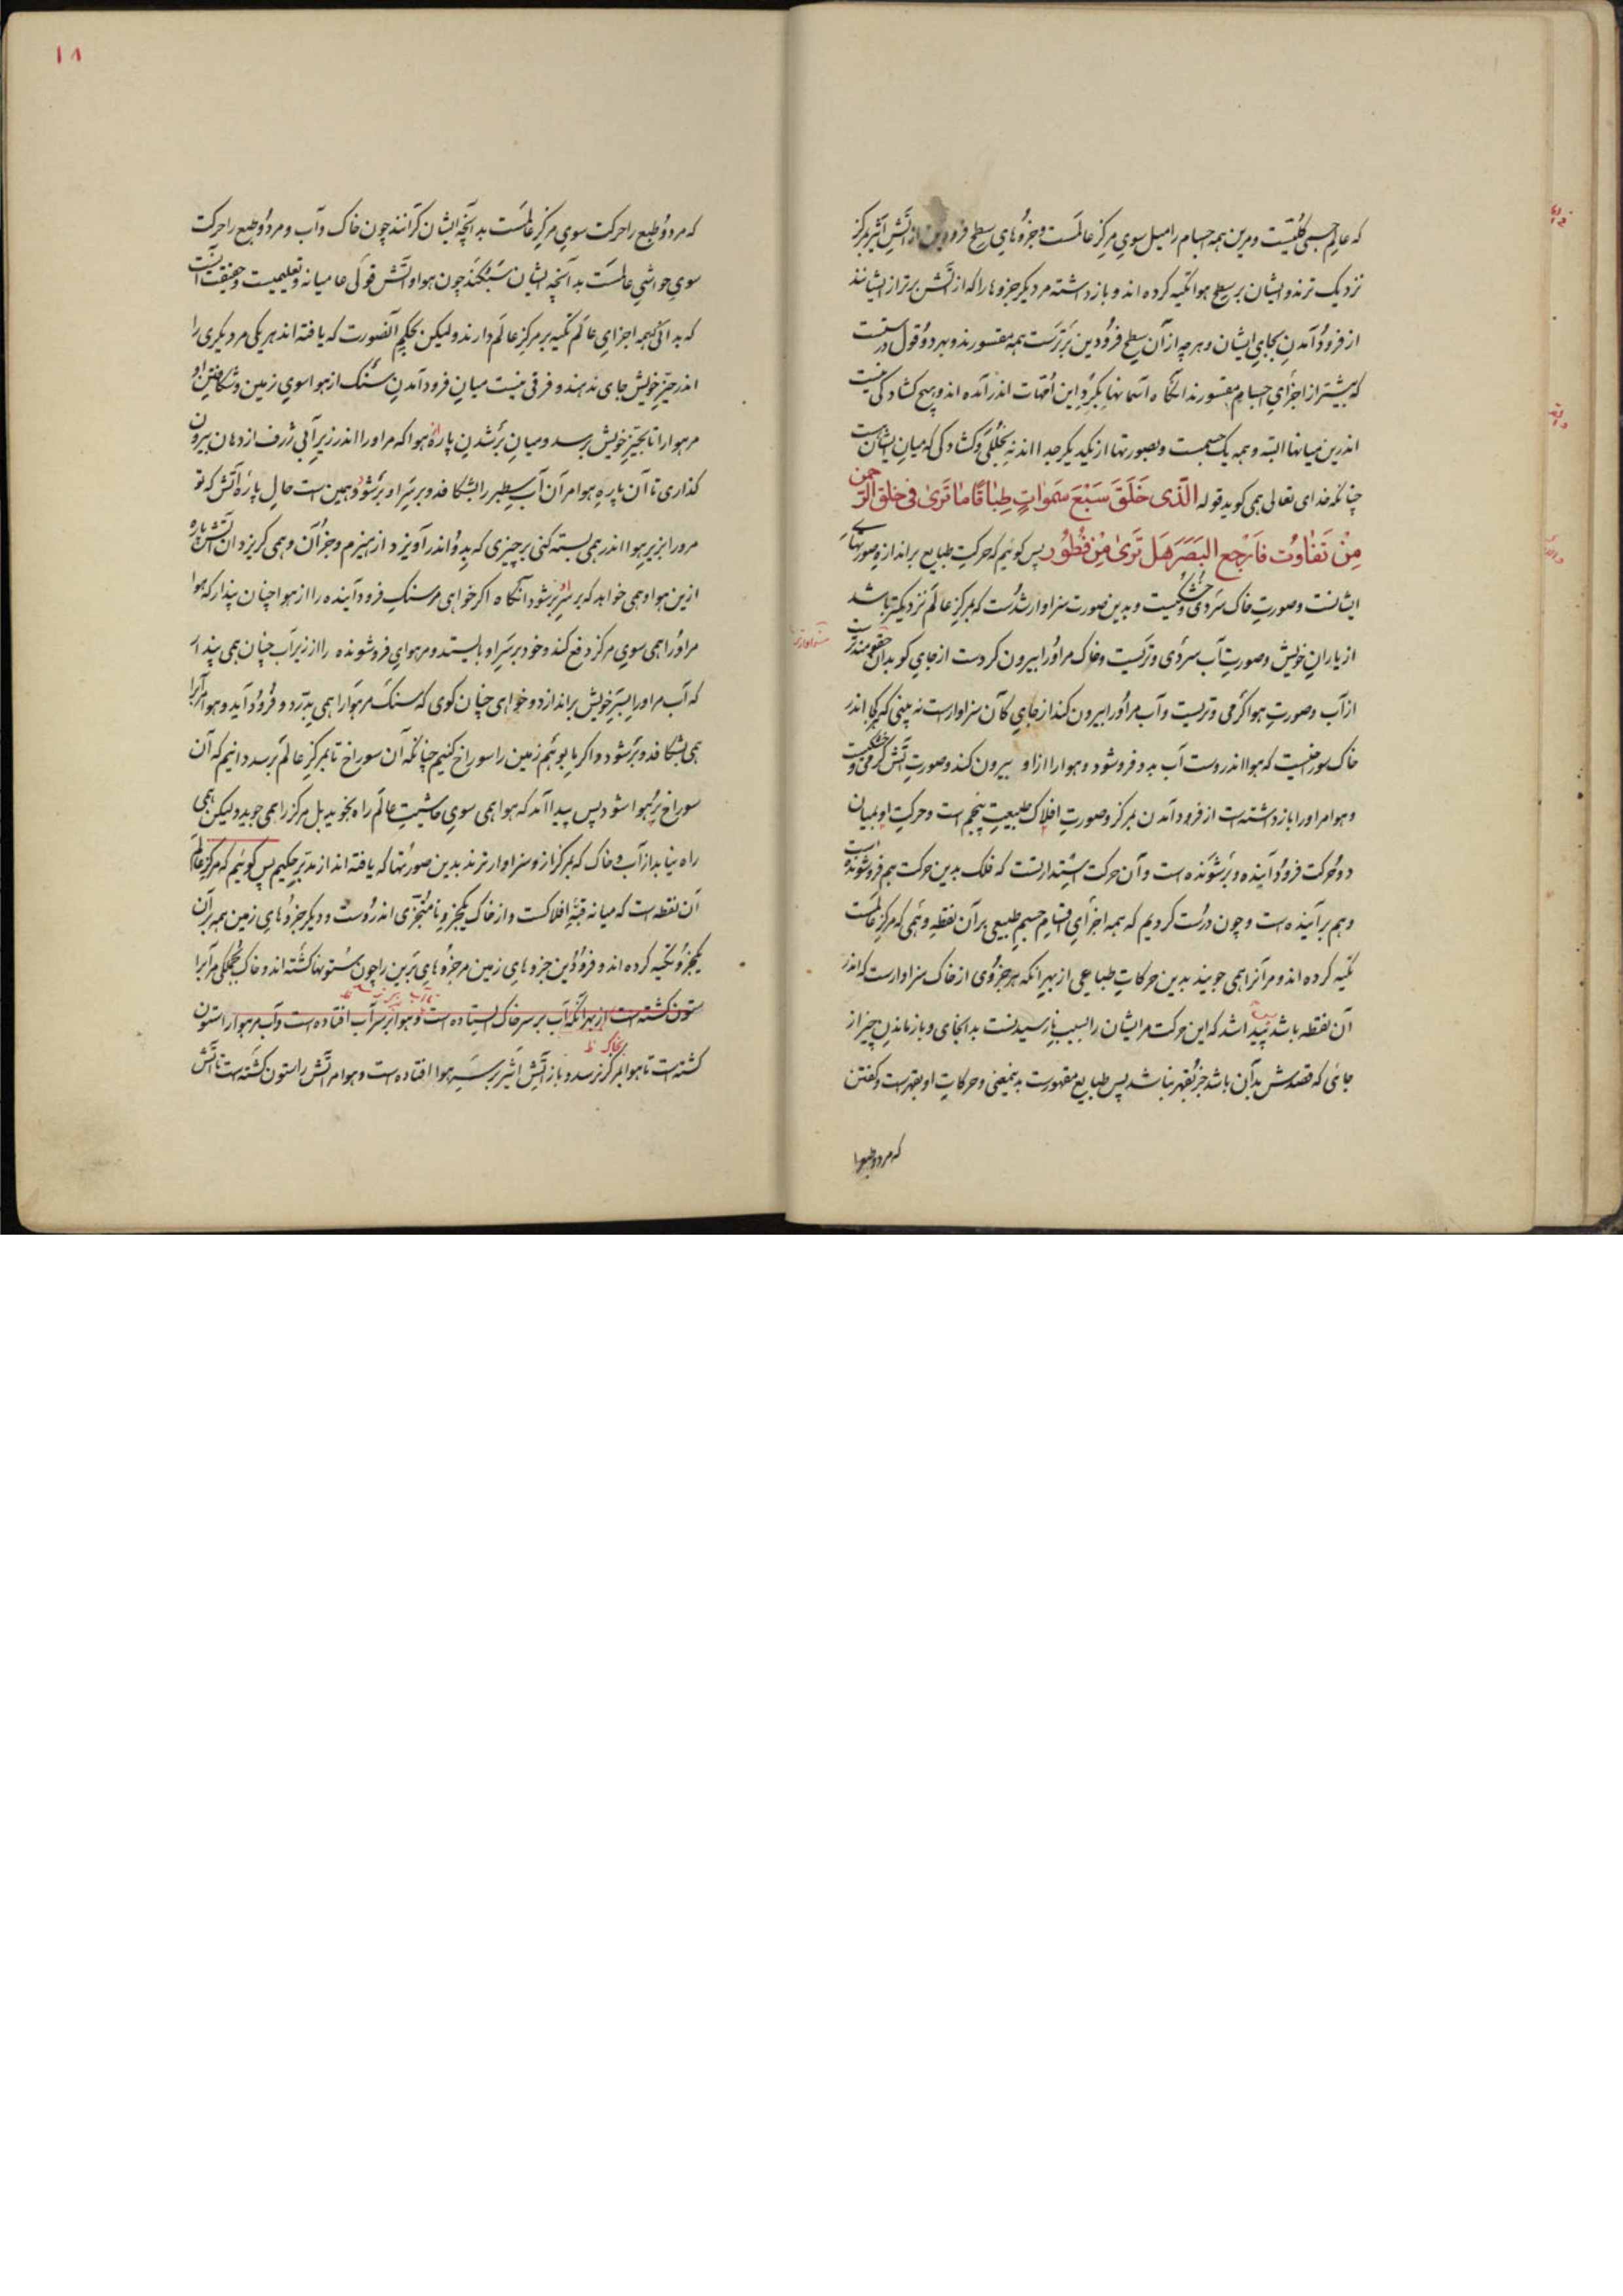 که عالم حسی کلیّت است و مرین همه اجسام را میل سوی مرکز عالمست و جزوهای سطح فرودین از آتش اثیر بمرکز
نزدیک ترند و ایشان بر سطح هوا تکیه کرده اند و باز داشته مر دیکر جزوها را که از آتش برتر از ایشانند
از فرود آمدن بجای ایشان و هر چه از آن سطح فرودین برترست همه مقسورند و بهر دو قول درستست
که بیشتر از اجزای اجسام مقسورند آنکاه آسمانها بکرد این امّهات اندر آمده اند و هیچ کشادکی نیست
اندرین میانها البته و همه یک جسمست و بصورتها از یکدیکر جدا اند نه بخللی و کشادکی که میان ایشانست
چنانکه خدای تعالی همی کوید قوله الَّذی خَلَقَ سَبْعَ سَمَوٰاتٍ طِبٰاقًا مٰا تَرَیٰ فی خَلْقِ الرَّحمن
مِنْ تَفٰاوُت فَارْجِعِ البَصَرَ هَل تَرَیٰ مِنْ فُطُور پس کوئیم که حرکت طبایع بر اندازه صورتهای
ایشانست و صورت خاک سردی و خشکیست و بدین صورت سزاوار شدست که بمرکز عالم نزدیکتر باشد
از یاران خویش و صورت آب سردی و تریست و خاک مر او را بیرون کردست از جای کو بدان حقومندترست
از آب و صورت هوا کرمی و تریست و آب مر او را بیرون کند از جای کآن سزاوارست نه بینی که هر کجا اندر
خاک سوراخیست که هوا اندروست آب بدو فرو شود و هوا را از او بیرون کند و صورت آتش کرمی و خشکیست
و هوا مر او را باز داشته است از فرود آمدن بمرکز و صورت افلاک طبیعت پنجم است و حرکت او بمیان
دو حرکت فرود آینده و برشونده است و آن حرکت استدارتست که فلک بدین حرکت هم فرو شونده است
و هم بر آینده است و چون درست کردیم که همه اجزای اقسام جسم طبیعی بر آن نقطه وهمی که مرکز عالمست
تکیه کرده اند و مر آنرا همی جویند بدین حرکات طباعی از بهر آنکه هر جزوی از خاک سزاوارست که اندر
آن نقطه باشد پیدا شد که این حرکت مر ایشان را بسبب نارسیدنست بدانجای و باز ماندن چیز از
جائی که قصدش بدآن باشد جز بقهر نباشد پس طبایع مقهورست بدینمعنی و حرکات او بقهرست و کفتن
که مر دو طبع را
۱۸
که مر دو طبع را حرکت سوی مرکز عالمست بدآنچه ایشان کرانند چون خاک و آب و مر دو طبع را حرکت
سوی حواشی عالمست بدآنچه ایشان سبکند چون هوا و آتش قولی عامیانه و تعلیمیست و حقیقت آنست
که بدآنک همه اجزای عالم تکیه بر مرکز عالم دارند و لیکن بحکم آنصورت که یافته اند هر یکی مر دیکری را
اندر حیّز خویش جای ندهند و فرقی نیست میان فرود آمدن سنک از هوا سوی زمین و شکافتن او
مر هوا را تا بحیّز خویش برسد و میان برشدن پاره هوا که مر او را اندر زیر آبی ژرف از دهان بیرون
کذاری تا آن پاره هوا مر آن آب سطبر را بشکافد و بر سر او برشود و همین است حال پاره آتش که تو
مرورا بزیر هوا اندر همی بسته کنی بر چیزی که بدو اندر آویزد از هیزم و جز آن و همی کریزد آن آتش پاره
ازین هوا و همی خواهد که بر سر او برشود آنکاه اکر خواهی مر سنک فرود آینده را از هوا چنان پندار که هوا
مر او را همی سوی مرکز دفع کند و خود بر سر او بایستد و مر هوای فرو شونده را از زیر آب چنان همی پندار
که آب مر او را بسر خویش بر اندازد و خواهی چنان کوی که سنک مر هوا را همی بدرّد و فرود آید و هوا مر آنرا
همی بشکافد و برشود و اکر ما بوهم زمین را سوراخ کنیم چنانکه آن سوراخ تا بمرکز عالم برسد دانیم که آن
سوراخ پر هوا شود پس پیدا آمد که هوا همی سوی حاشیت عالم راه نجوید بل مرکز را همی جوید و لیکن همی
راه نیابد از آب و خاک که بمرکز ازو سزاوارترند بدین صورتها که یافته اند از مدبّر حکیم پس کوئیم که مرکز عالم
آن نقطه است که میانه قبّه افلاکست و از خاک یکجزو نامتجزّی اندروست و دیکر جزوهای زمین همه بر آن
یکجزو تکیه کرده اند و فرودین جزوهای زمین مر جزوهای برین را چون ستونها کشته اند و خاک بجملکی مر آب را
ستون کشته است از بهر آنکه آب بر سر خاک ایستاده است و هوا بر سر آب افتاده است و آب مر هوا را ستون
کشته است تا هوا بمرکز نرسد و باز آتش اثیر بر سر هوا افتاده است و هوا مر آتش را ستون کشته است تا آتش